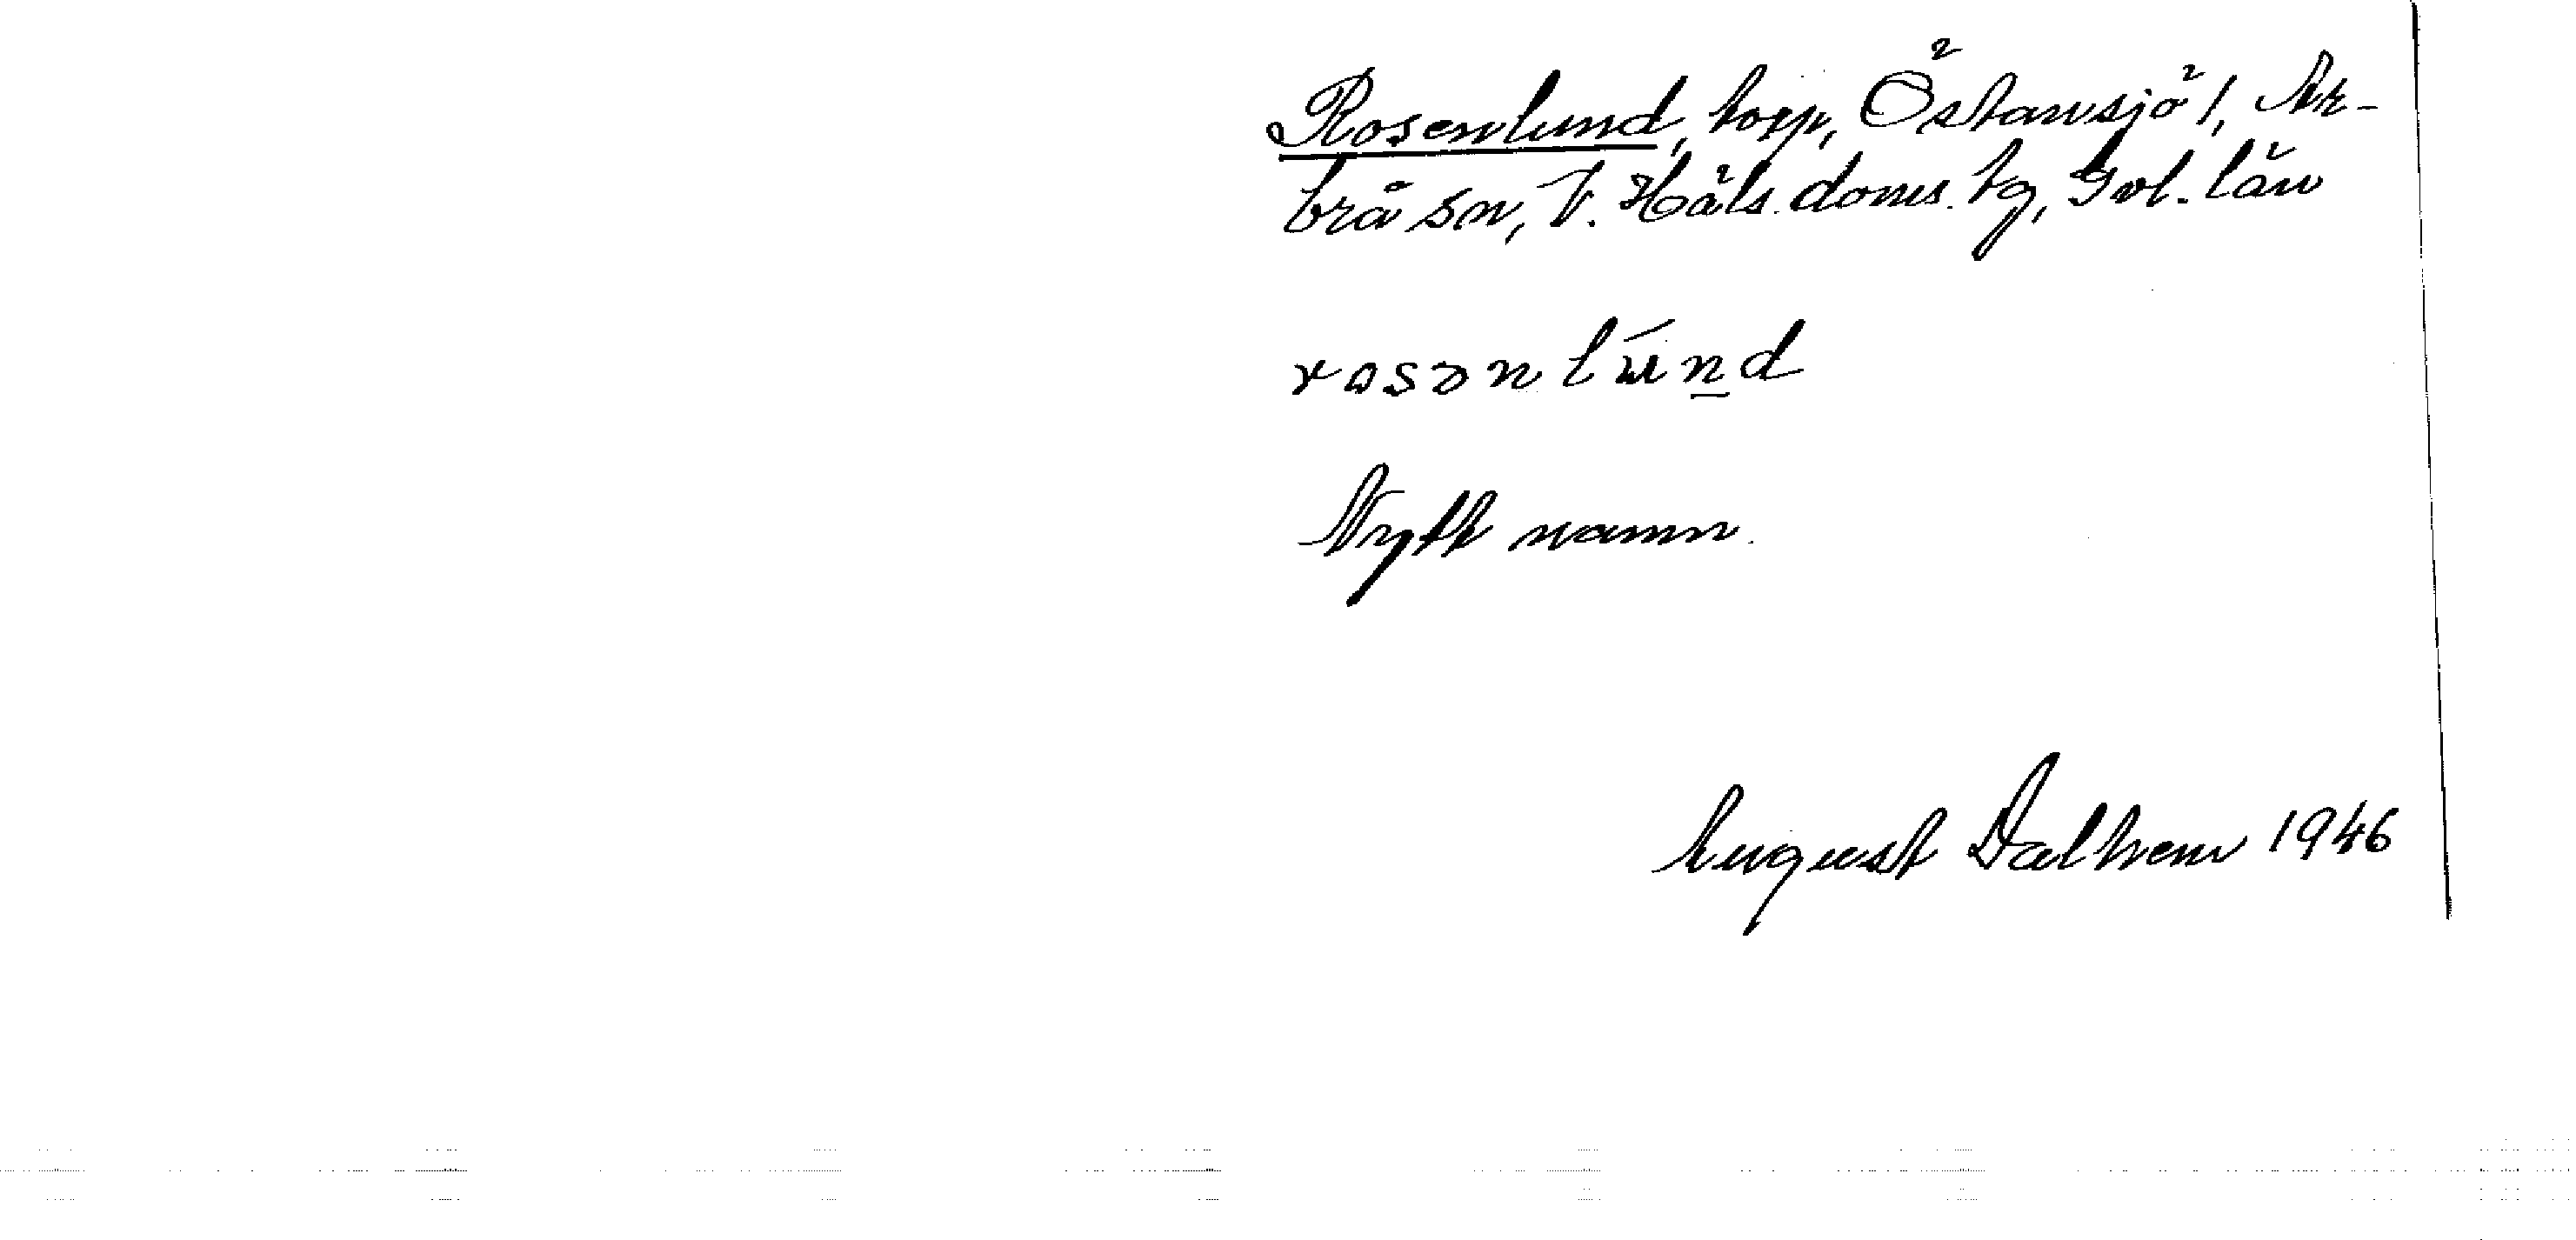 Rosenlund, torp, Östansjö 1, Ar-
brå sn, V. Häls. doms. tg, Gvl. län
rosənlúnd
Nytt namn.
August Dalhem 1946